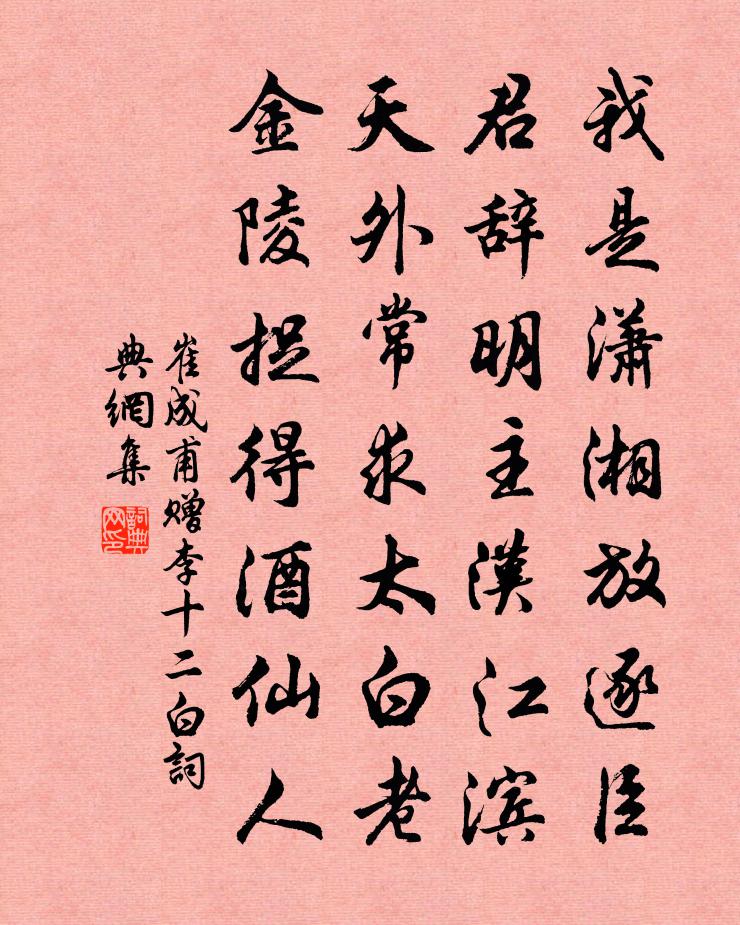 我是潇湘放逐臣
君辞明主漢江滨
天外常求太白老
金陵捉得酒仙人
崔成甫赠李十二白詞
典網集
詞典網印